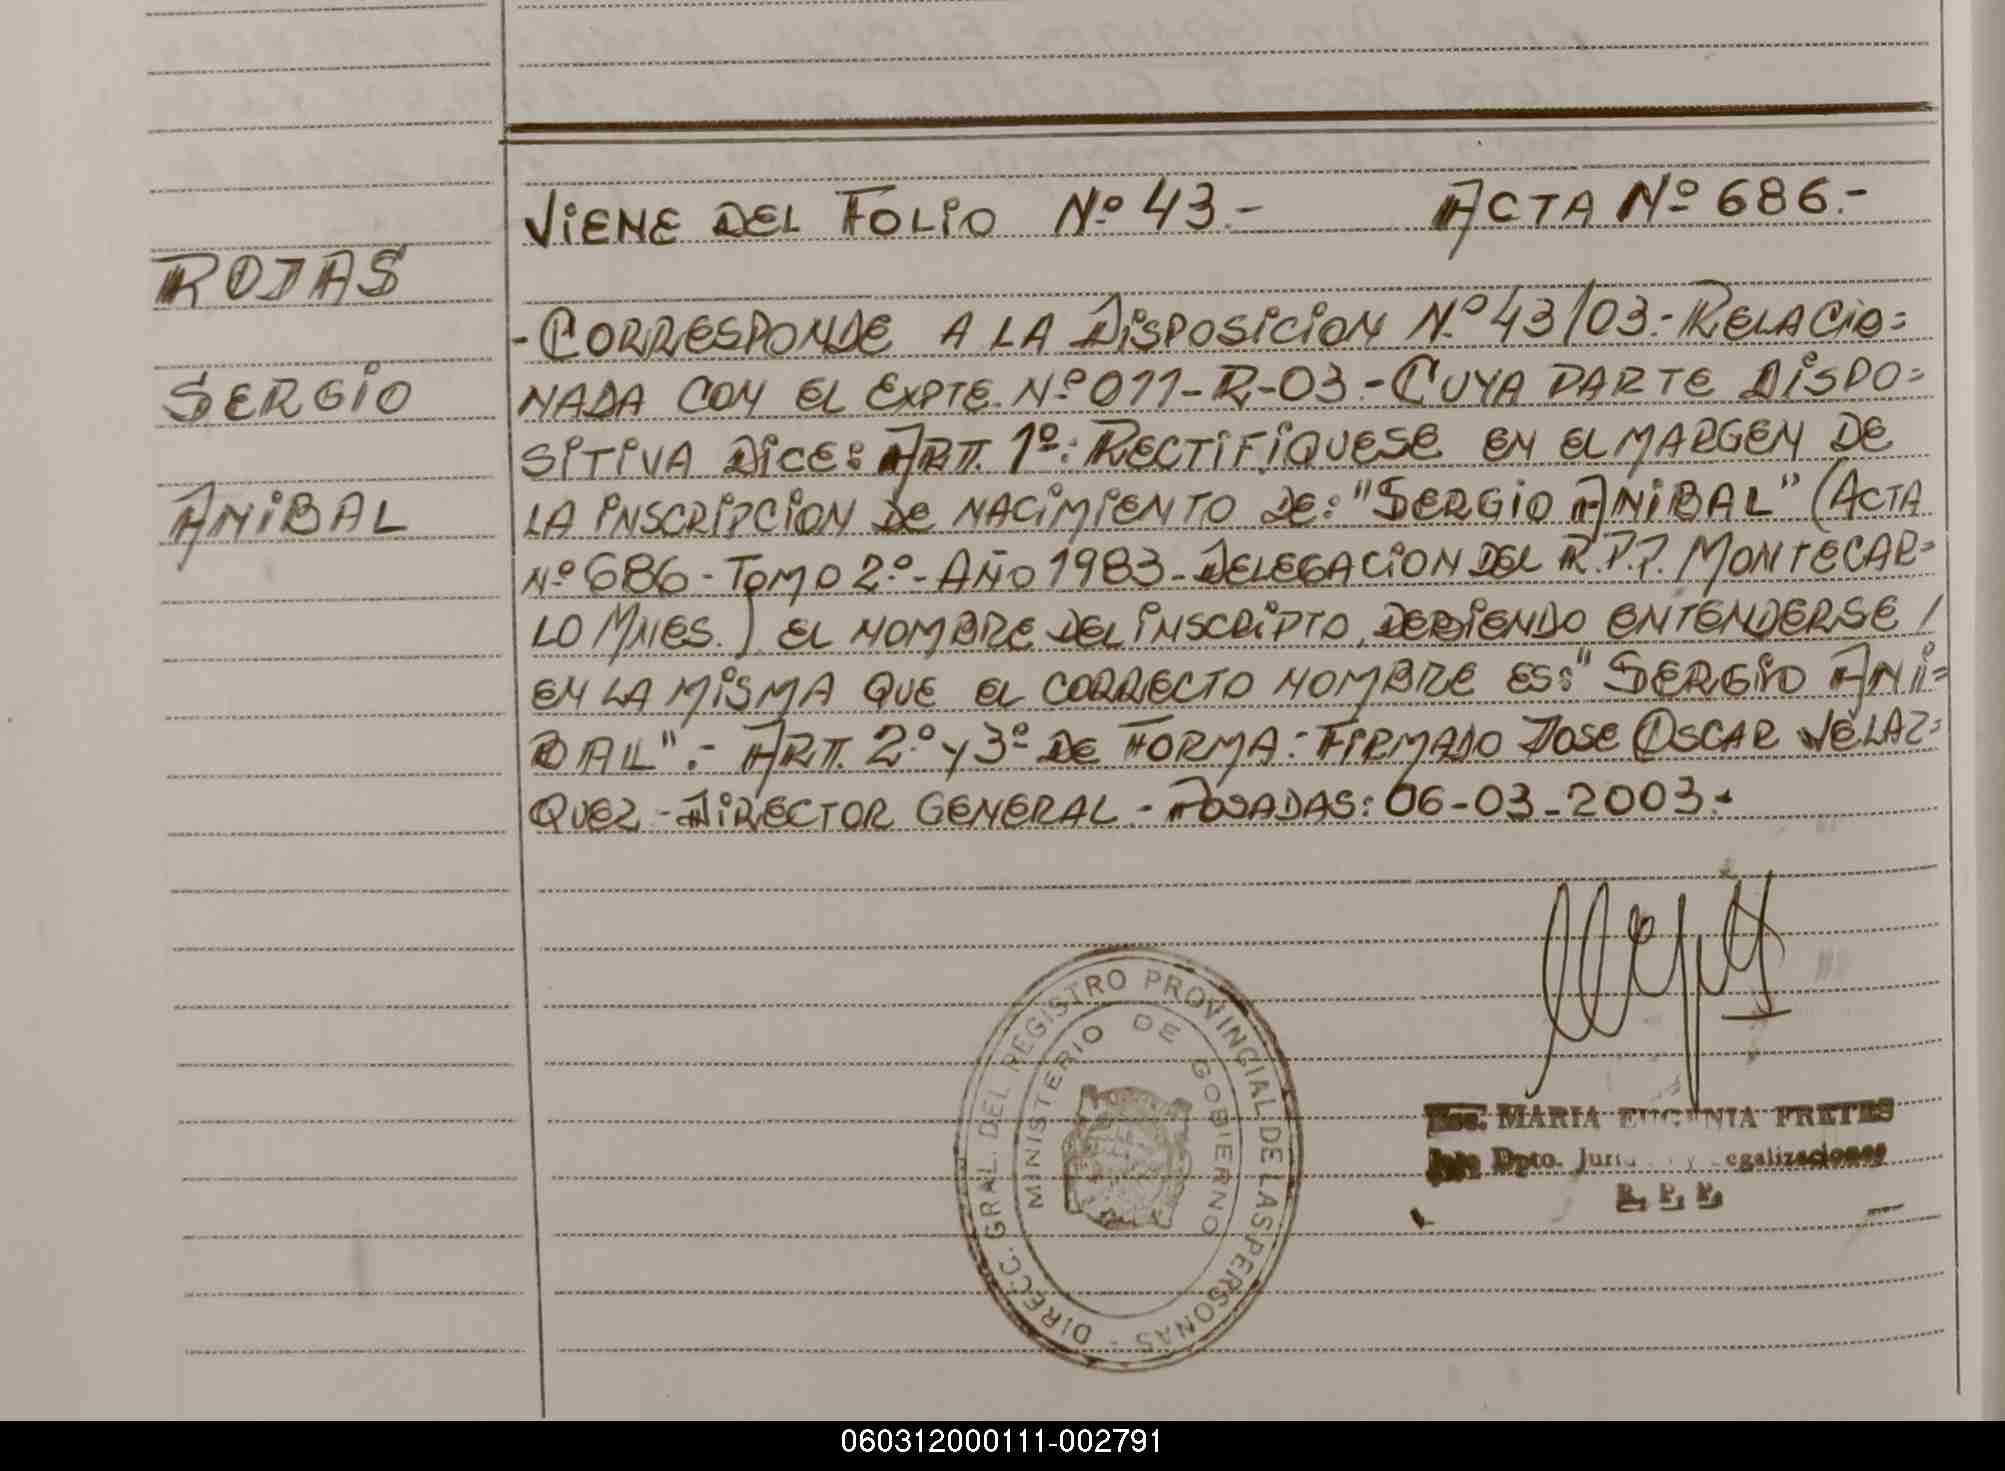 VIENE DEL FOLIO Nº 43.- ACTA Nº 686.-
ROJAS
SERGIO
ANIBAL
- CORRESPONDE A LA DISPOSICION Nº 43/03.- RELACIO=
NADA CON EL EXPTE. Nº 011-R-03.- CUYA PARTE DISPO=
SITIVA DICE: ART. 1º: RECTIFIQUESE EN EL MARGEN DE
LA INSCRIPCION DE NACIMIENTO DE: "SERGIO ANIBAL" (ACTA
Nº 686 - TOMO 2º - AÑO 1983 - DELEGACION DEL R.P.P. MONTECAR=
LO MNES.) EL NOMBRE DEL INSCRIPTO, DEBIENDO ENTENDERSE /
EN LA MISMA QUE EL CORRECTO NOMBRE ES: "SERGIO ANI=
BAL".- ART. 2º y 3º DE FORMA: FIRMADO JOSE OSCAR VELAZ=
QUEZ - DIRECTOR GENERAL - POSADAS: 06-03-2003.-
DIRECC. GRAL. DEL REGISTRO PROVINCIAL DE LAS PERSONAS -
MINISTERIO DE GOBIERNO
MARIA EUGENIA FRETES
Jefe Dpto. y Legalizaciones
R. P. P.
060312000111-002791